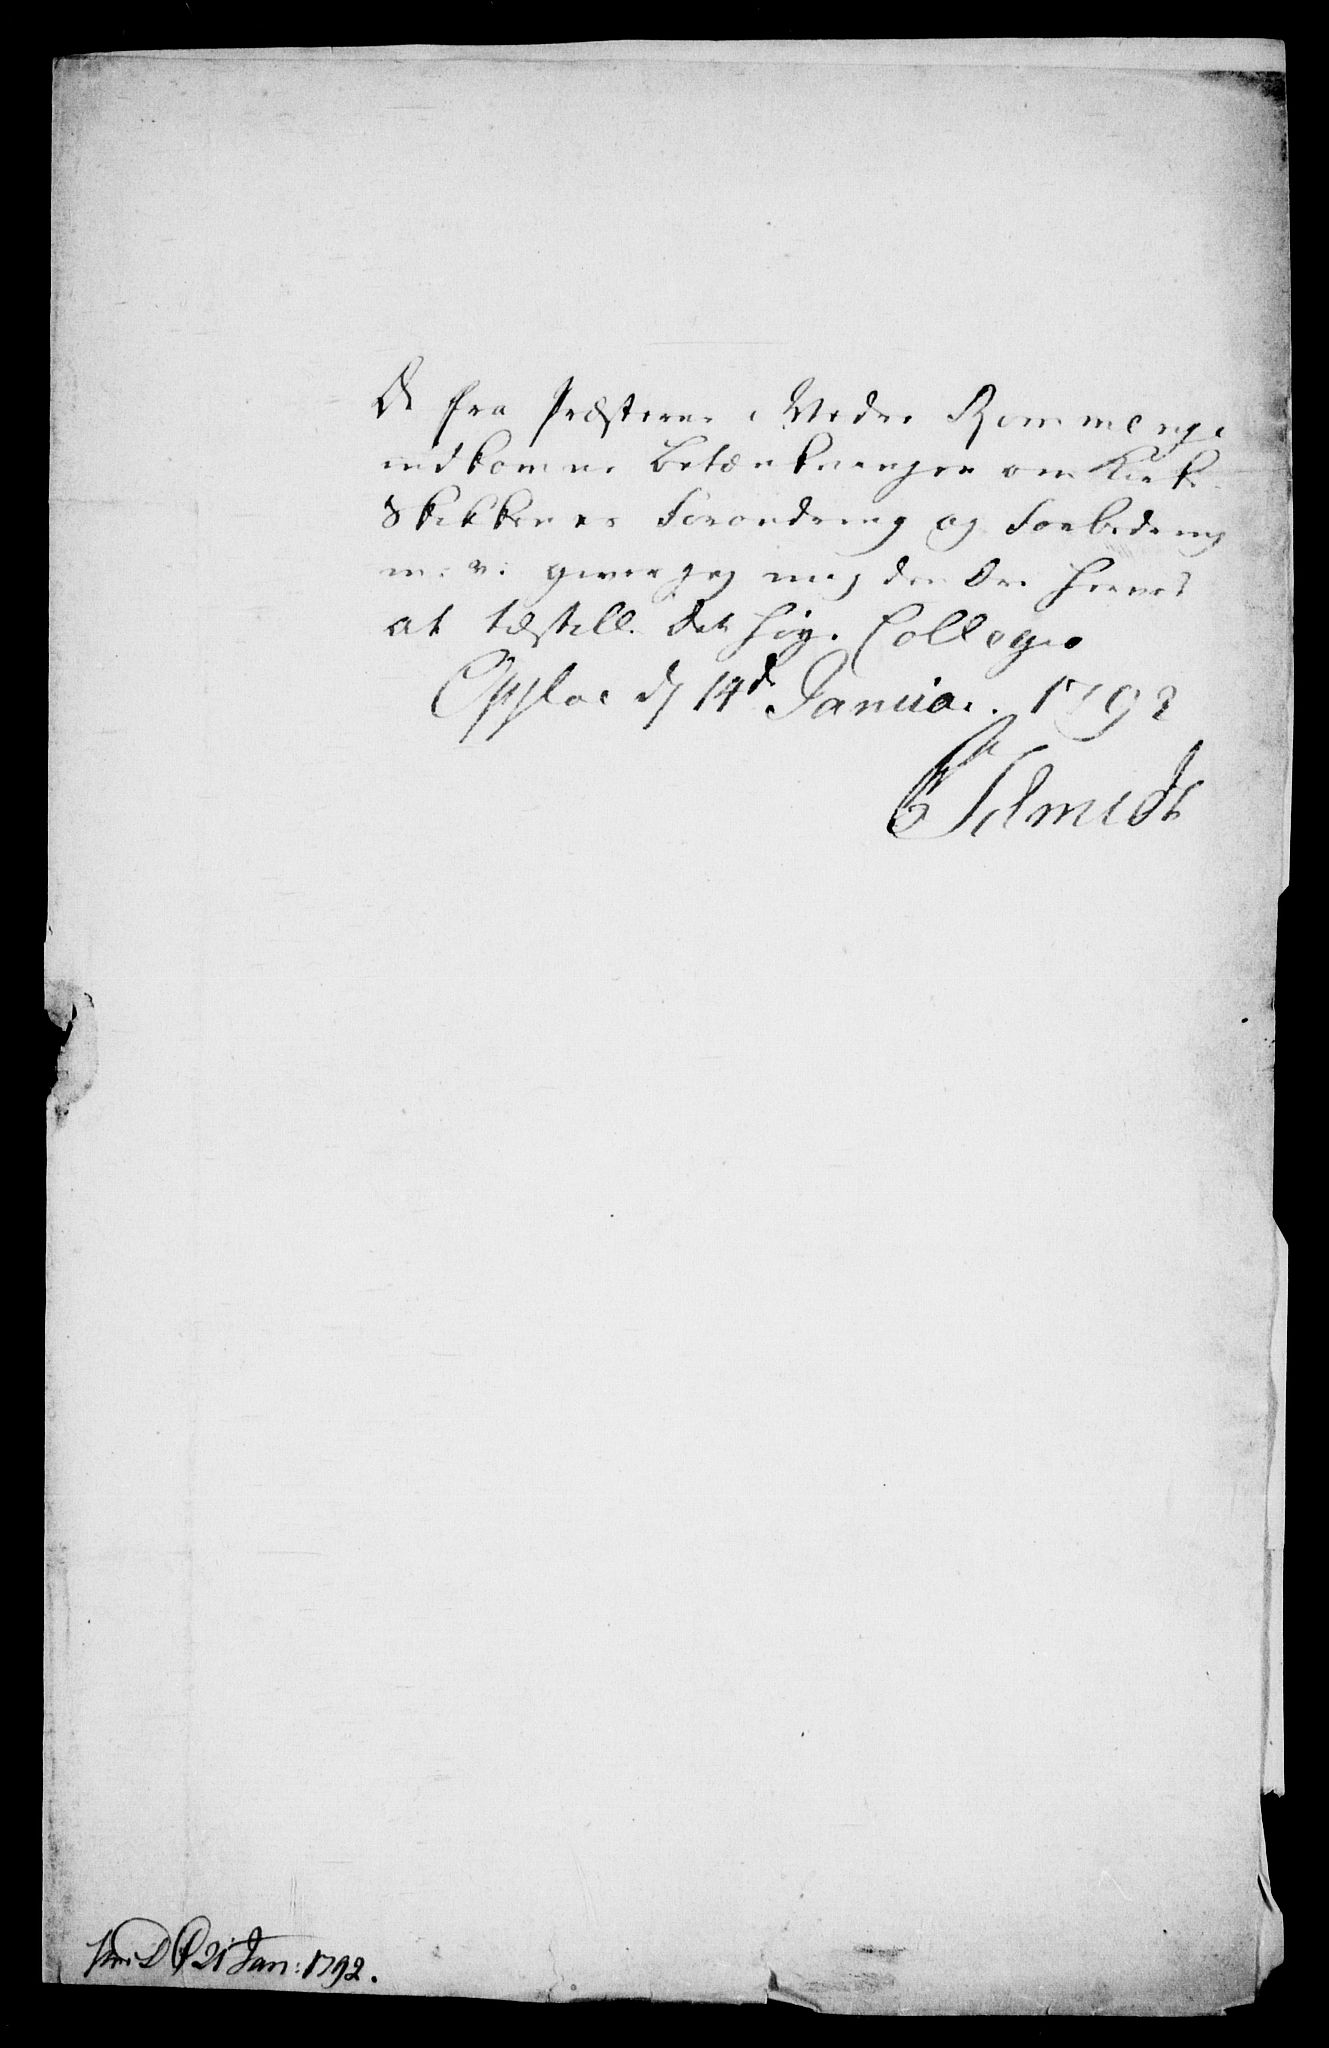 De fra Præsterne i Nedre Rommerige
indkomne Betænkninger om Kirke-
Skikkenes Forandring og Forbedring
m: v: giver jeg mig den Ære herved
at tilstille Det høye Collegio
Opsloe d 14de Januar. 1792
Schmidt
21 Jan: 1792.